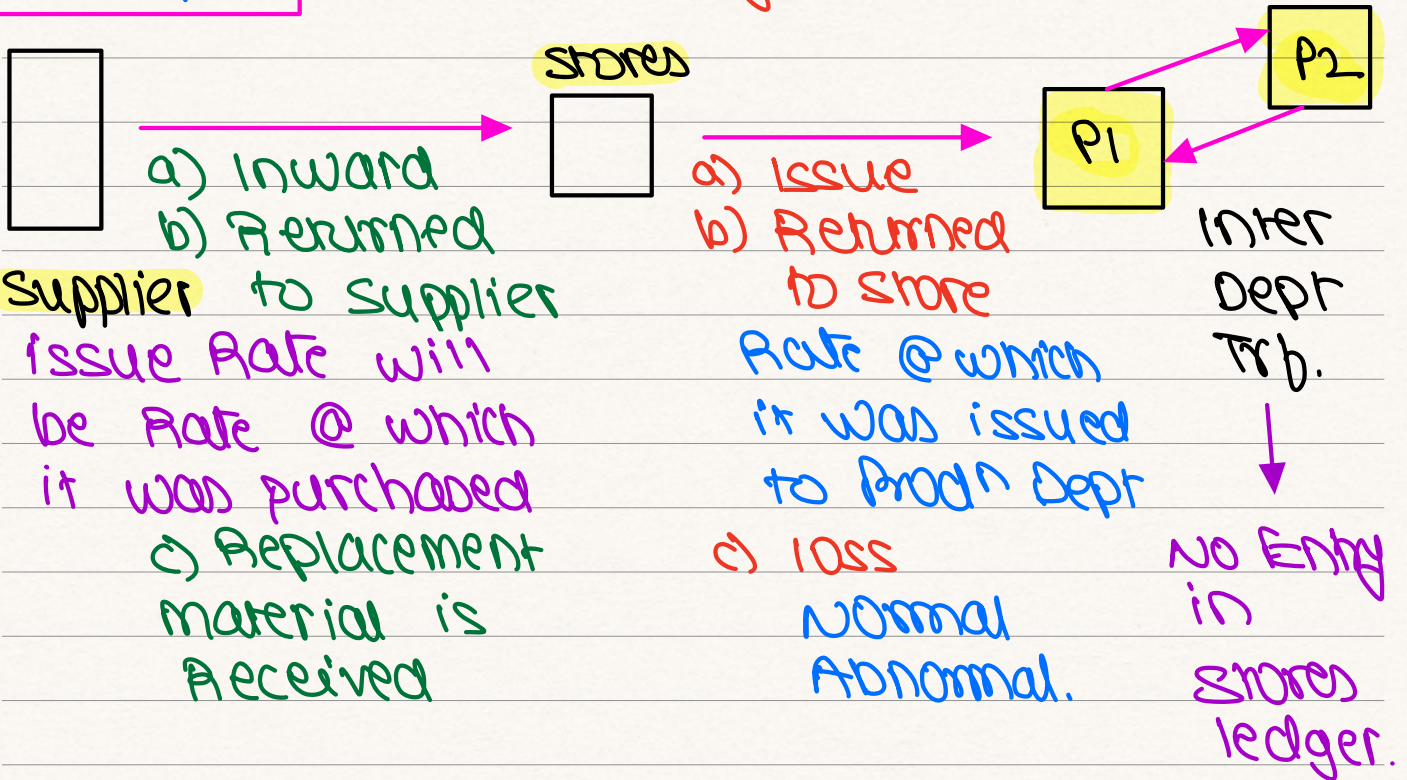 stores
P2
P1
a) Inward
b) Returned
to supplier
Supplier
issue Rate will
be Rate @ which
it was purchased
c) Replacement
material is
Received
a) Issue
b) Returned
to store
Rate @ which
it was issued
to Prodn Dept
c) loss
Normal
Abnormal.
Inter
Dept
Trf.
No Entry
in
stores
ledger.